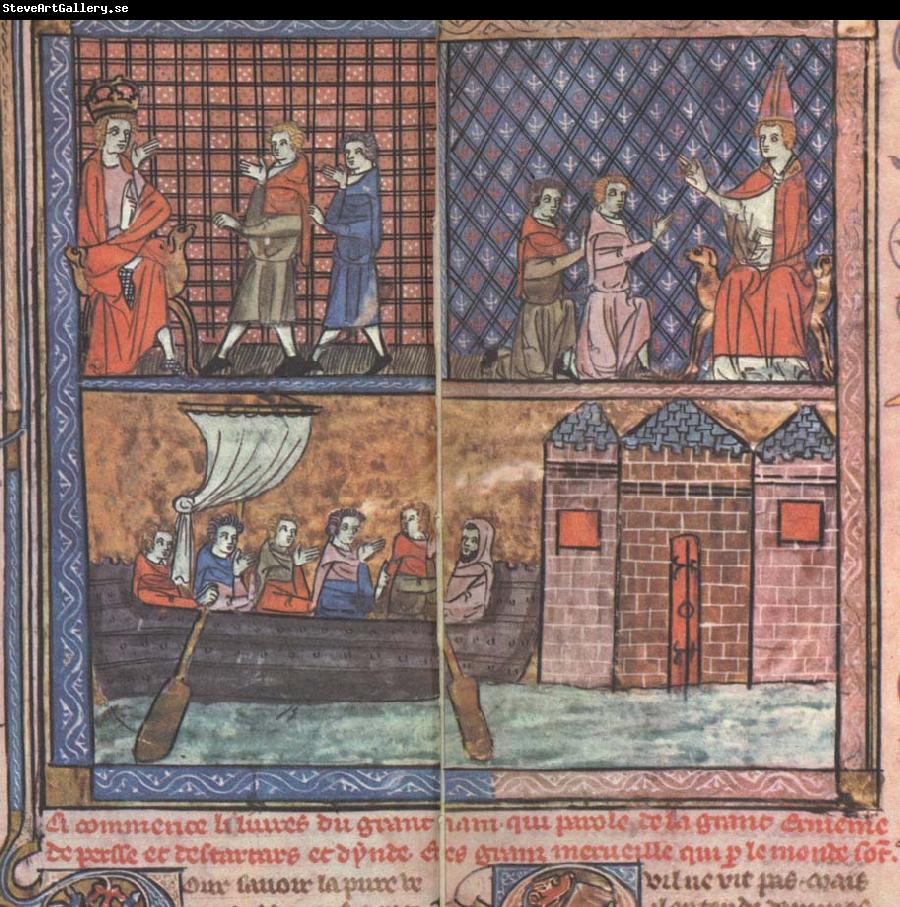 SteveArtGallery.se
Ci commence li liures du grant kaan qui parole de la grant Ermenie
de persse et des tartars et dynde Et des granz merueille qui p le monde sont.
Our sauoir la pure ve
vil ne vit pas. Mais